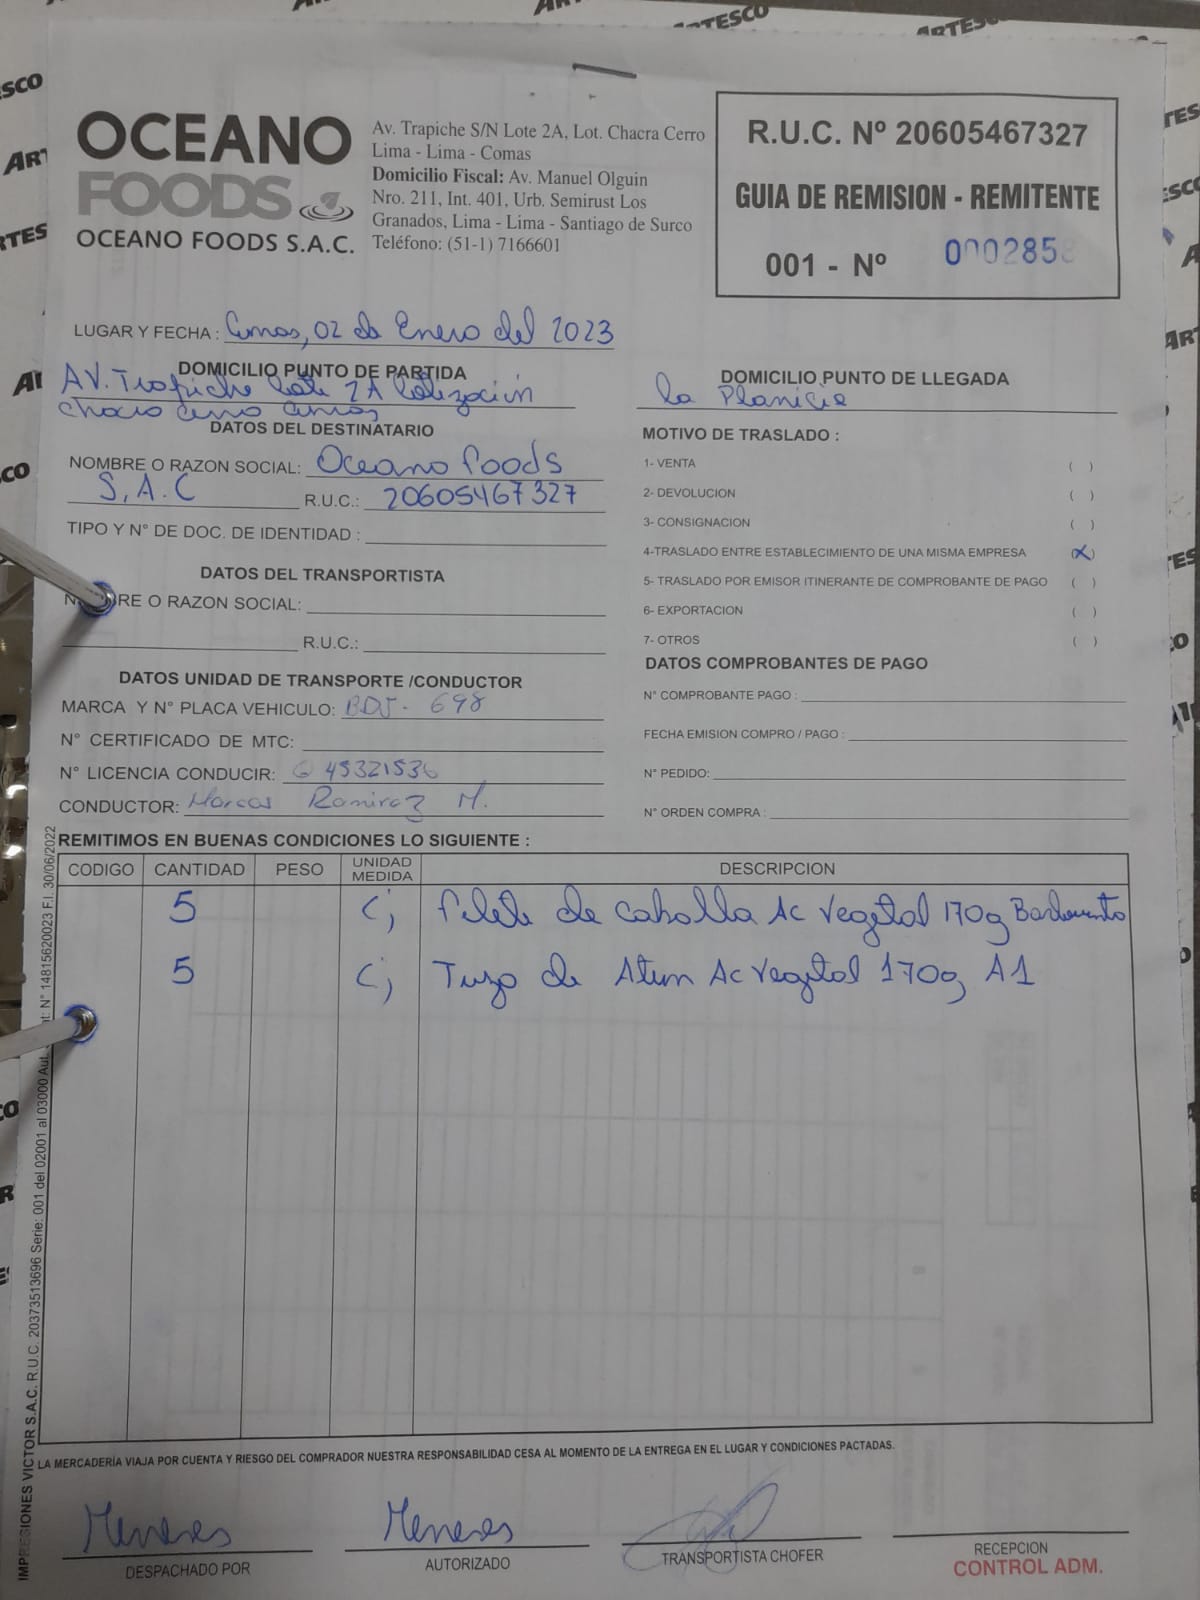 OCEANO
FOODS
OCEANO FOODS S.A.C.
Av. Trapiche S/N Lote 2A, Lot. Chacra Cerro
Lima - Lima - Comas
Domicilio Fiscal: Av. Manuel Olguin
Nro. 211, Int. 401, Urb. Semirust Los
Granados, Lima - Lima - Santiago de Surco
Teléfono: (51-1) 7166601
R.U.C. Nº 20605467327
GUIA DE REMISION - REMITENTE
001 - Nº 0002858
LUGAR Y FECHA : Comas, 02 de Enero del 2023
DOMICILIO PUNTO DE PARTIDA
AV. Trapiche Lote 2A Lotización
chacra cerro Comas
DOMICILIO PUNTO DE LLEGADA
la Planicie
DATOS DEL DESTINATARIO
NOMBRE O RAZON SOCIAL: Oceano foods
S.A.C R.U.C.: 20605467327
TIPO Y N° DE DOC. DE IDENTIDAD :
DATOS DEL TRANSPORTISTA
NOMBRE O RAZON SOCIAL:
R.U.C.:
DATOS UNIDAD DE TRANSPORTE /CONDUCTOR
MARCA Y N° PLACA VEHICULO: BDJ- 698
N° CERTIFICADO DE MTC:
N° LICENCIA CONDUCIR: Q 45321536
CONDUCTOR: Marcos Ramirez M.
MOTIVO DE TRASLADO :
1- VENTA ( )
2- DEVOLUCION ( )
3- CONSIGNACION ( )
4-TRASLADO ENTRE ESTABLECIMIENTO DE UNA MISMA EMPRESA (X)
5- TRASLADO POR EMISOR ITINERANTE DE COMPROBANTE DE PAGO ( )
6- EXPORTACION ( )
7- OTROS ( )
DATOS COMPROBANTES DE PAGO
N° COMPROBANTE PAGO :
FECHA EMISION COMPRO / PAGO :
N° PEDIDO:
N° ORDEN COMPRA :
REMITIMOS EN BUENAS CONDICIONES LO SIGUIENTE :
CODIGO CANTIDAD PESO UNIDAD MEDIDA DESCRIPCION
5 Cj filete de caballa Ac Vegetal 170g Barlovento
5 Cj Trozo de Atun Ac Vegetal 170g A1
LA MERCADERÍA VIAJA POR CUENTA Y RIESGO DEL COMPRADOR NUESTRA RESPONSABILIDAD CESA AL MOMENTO DE LA ENTREGA EN EL LUGAR Y CONDICIONES PACTADAS.
Meneses
DESPACHADO POR
Meneses
AUTORIZADO
TRANSPORTISTA CHOFER
RECEPCION
CONTROL ADM.
IMPRESIONES VICTOR S.A.C. R.U.C. 20373513696 Serie: 001 del 02001 al 03000 Aut. N° 14815620023 F.I. 30/06/2022
ARTESCO